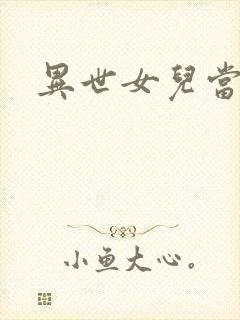 異世女兒當
小魚大心。